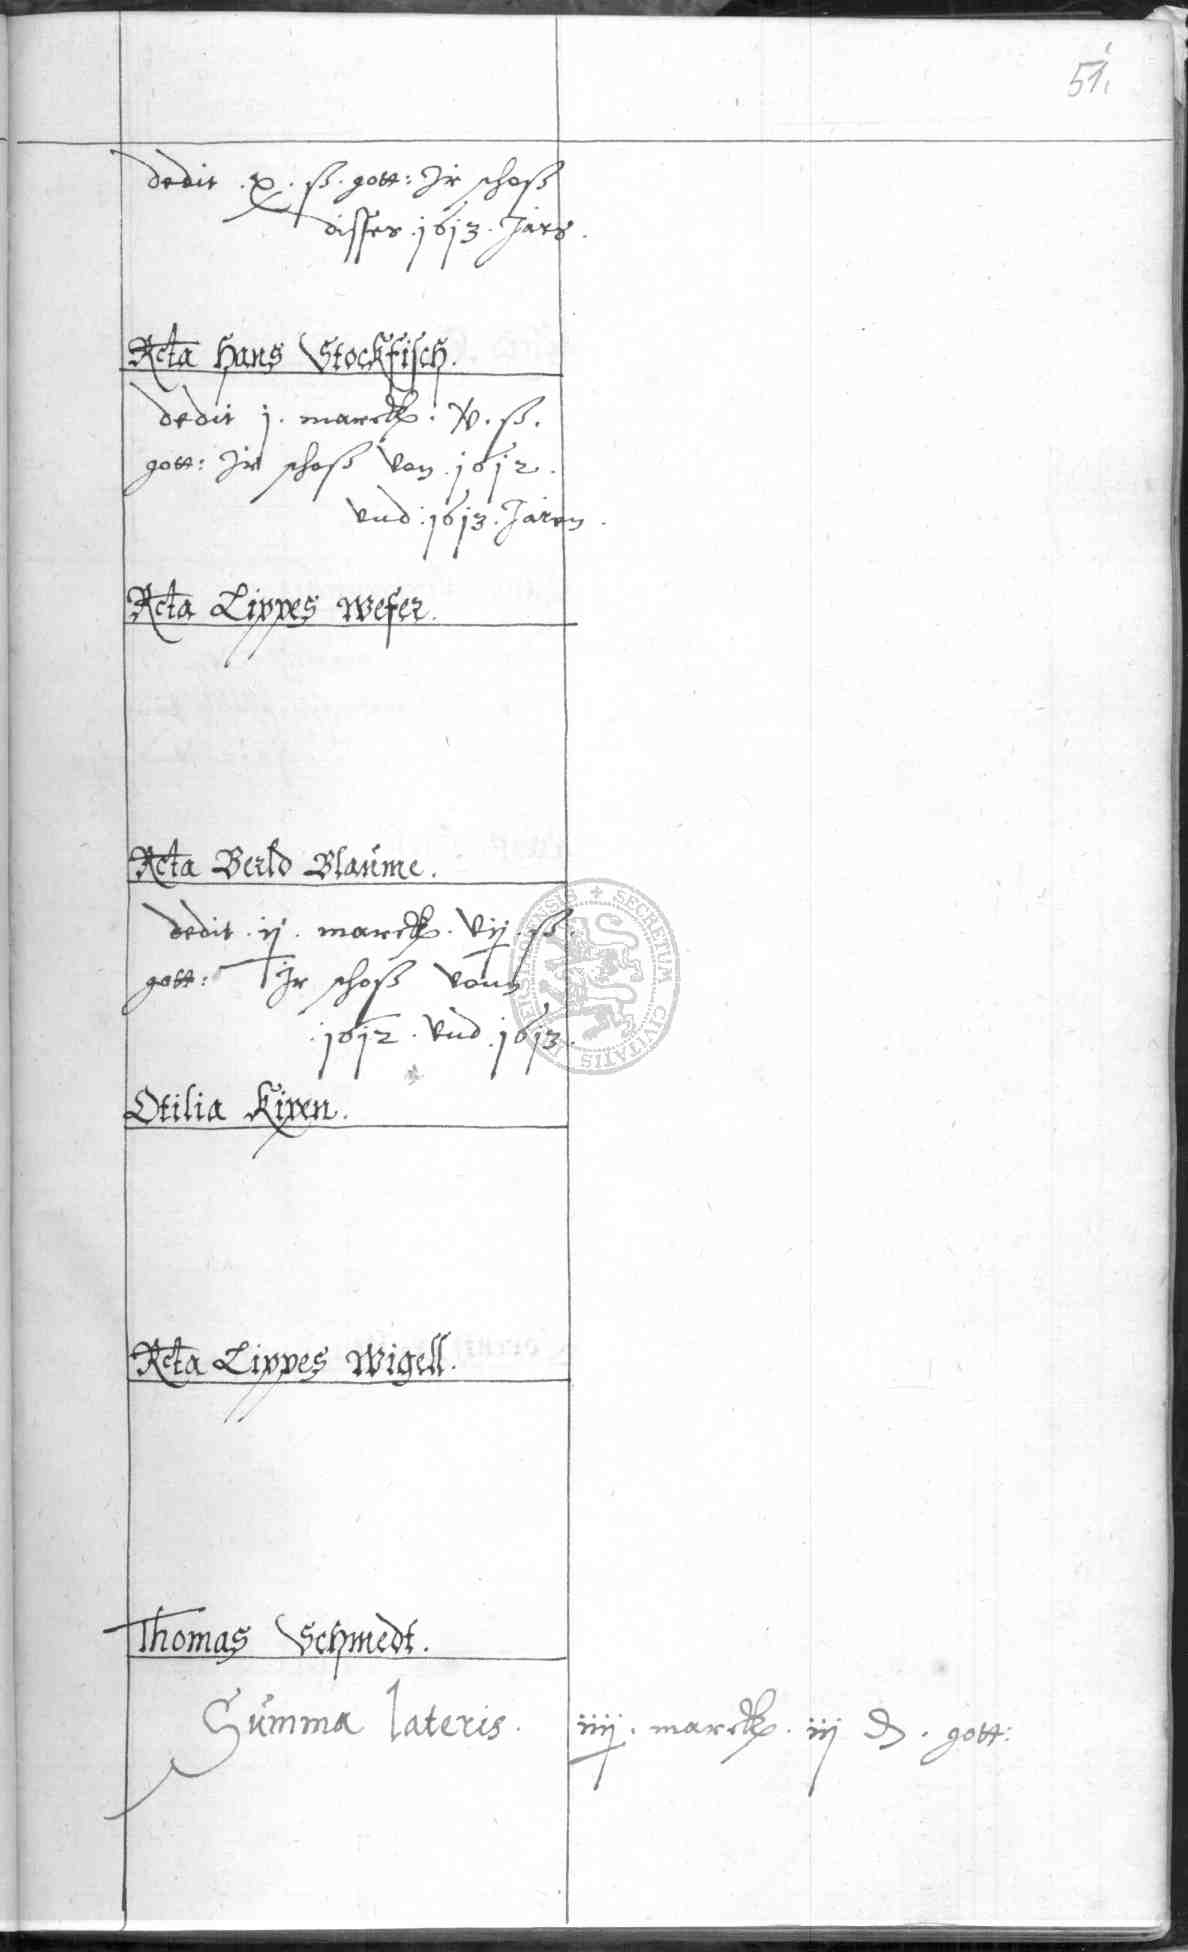 51.
dedit .x. ß. gott: Ir schoß
disser .1613. Jars.
Rcta Hans Stockfisch.
dedit j. marck: xv. ß.
gott: Ir schoß von .1612.
vnd .1613. Jaren.
Rcta Lippes Wefer.
Rcta Berld Blaume.
dedit .ij. marck. vij. ß.
gott: Ir schoß vonn
.1612. vnd .1613.
Otilia Kipen.
Rcta Lippes Wigell.
Thomas Schmedt.
Summa lateris. iiij. marck. iij ₰. gott:
SECRETUM CIVITATIS